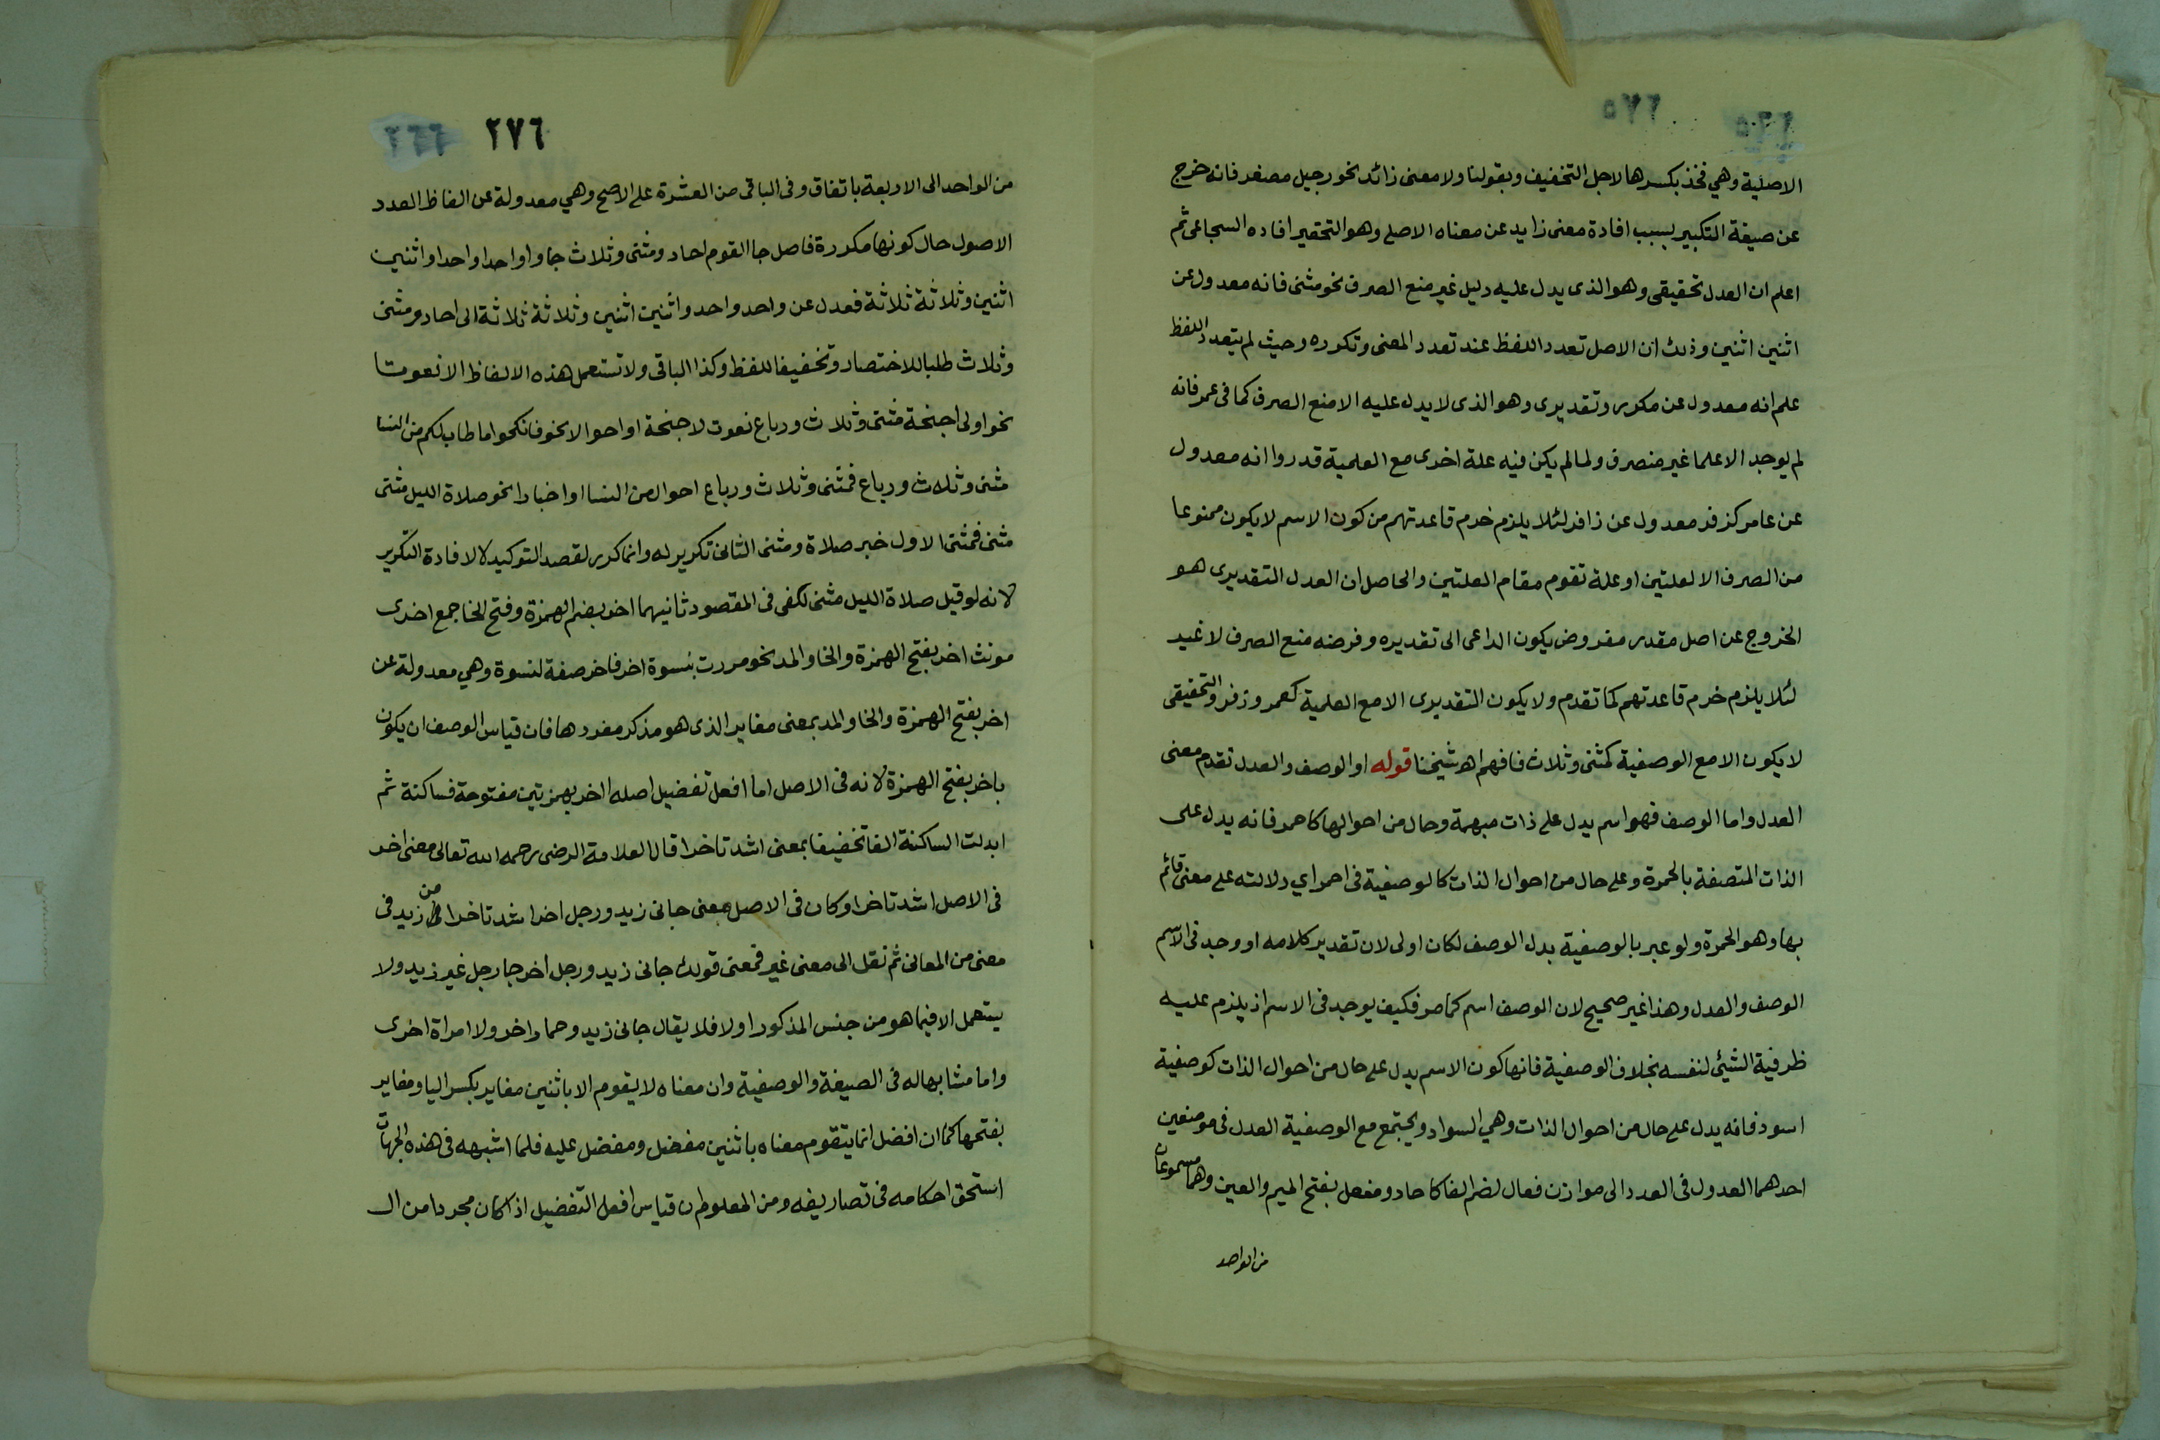 الاصلية وهي فخذ بكسرها لاجل التخفيف وبقولنا ولا معنى زائد نحو رجيل مصغر فانه خرج
عن صيغة التكبير بسبب افادة معنى زايد عن معناه الاصلى وهو التحقير افاده السجاعى ثم
اعلم ان العدل تحقيقى وهو الذى يدل عليه دليل غير منع الصرف نحو مثنى فانه معدول عن
اثنين اثنين وذلك ان الاصل تعدد اللفظ عند تعدد المعنى وتكرره وحيث لم يتعدد اللفظ
علم انه معدول عن مكرر وتقديرى وهو الذى لا يدل عليه الا منع الصرف كما فى عمر فانه
لم يوجد الا علما غير منصرف ولما لم يكن فيه علة اخرى مع العلمية قدروا انه معدول
عن عامر كزفر معدول عن زافر لئلا يلزم خرم قاعدتهم من كون الاسم لا يكون ممنوعا
من الصرف الا لعلتين او علة تقوم مقام العلتين والحاصل ان العدل التقديرى هو
الخروج عن اصل مقدر مفروض يكون الداعى الى تقديره وفرضه منع الصرف لا غير
لئلا يلزم خرم قاعدتهم كما تقدم ولا يكون التقديرى الا مع العلمية كعمر وزفر والتحقيقى
لا يكون الا مع الوصفية كمثنى وثلاث فافهم اهـ شيخنا قوله او الوصف والعدل تقدم معنى
العدل واما الوصف فهو اسم يدل على ذات مبهمة وحال من احوالها كاحمر فانه يدل على
الذات المتصفة بالحمرة وعلى حال من احوال الذات كالوصفية فى احمر اي دلالته على معنى قائم
بها وهو الحمرة ولو عبر بالوصفية بدل الوصف لكان اولى لان تقدير كلامه او وجد فى الاسم
الوصف والعدل وهذا غير صحيح لان الوصف اسم كما مر فكيف يوجد فى الاسم اذ يلزم عليه
ظرفية الشيئ لنفسه بخلاف الوصفية فانها كون الاسم يدل على حال من احوال الذات كوصفية
اسود فانه يدل على حال من احوال الذات وهي السواد ويجتمع مع الوصفية العدل فى موضعين
احدهما العدول فى العدد الى موازن فعال بضم الفا كاحاد ومفعل بفتح الميم والعين وهما مسموعان
من الواحد
٢٧٦
من الواحد الى الاربعة باتفاق وفى الباقى من العشرة على الاصح وهي معدولة عن الفاظ العدد
الاصول حال كونها مكررة فاصل جا القوم احاد ومثنى وثلاث جاوا واحدا واحدا واثنين
اثنين وثلاثة ثلاثة فعدل عن واحد واحد واثنين اثنين وثلاثة ثلاثة الى احاد ومثنى
وثلاث طلبا للاختصار وتخفيفا للفظ وكذا الباقى ولا تستعمل هذه الالفاظ الا نعوتا
نحو اولى اجنحة مثنى وثلاث ورباع نعوت لاجنحة او احوالا نحو فانكحوا ما طاب لكم من النسا
مثنى وثلاث ورباع فمثنى وثلاث ورباع احوال من النسا او اخبارا نحو صلاة الليل مثنى
مثنى فمثنى الاول خبر صلاة ومثنى الثانى تكرير له وانما كرر لقصد التوكيد لا لافادة التكرير
لانه لو قيل صلاة الليل مثنى لكفى فى المقصود ثانيهما اخر بضم الهمزة وفتح الخا جمع اخرى
مونث اخر بفتح الهمزة والخا والمد نحو مررت بنسوة اخر فاخر صفة لنسوة وهي معدولة عن
اخر بفتح الهمزة والخا والمد بمعنى مغاير الذى هو مذكر مفردها فان قياس الوصف ان يكون
باخر بفتح الهمزة لانه فى الاصل اما افعل تفضيل اصله ااخر بهمزتين مفتوحة فساكنة ثم
ابدلت الساكنة الفا تخفيفا بمعنى اشد تاخرا قال العلامة الرضى رحمه الله تعالى معنى اخر
فى الاصل اشد تاخرا وكان فى الاصل معنى جانى زيد ورجل اخر اشد تاخرا من زيد فى
معنى من المعانى ثم نقل الى معنى غير فمعنى قولك جانى زيد ورجل اخر جا رجل غير زيد ولا
يستعمل الا فيما هو من جنس المذكور اولا فلا يقال جانى زيد وحمار اخر ولا امراة اخرى
واما مشابهاله فى الصيغة والوصفية وان معناه لا يقوم الا باثنين مغاير بكسر اليا ومغاير
بفتحها كما ان افضل انما يتقوم معناه باثنين مفضل ومفضل عليه فلما اشبهه فى هذه الجهات
استحق احكامه فى تصاريفه ومن المعلوم ان قياس افعل التفضيل اذا كان مجردا من ال